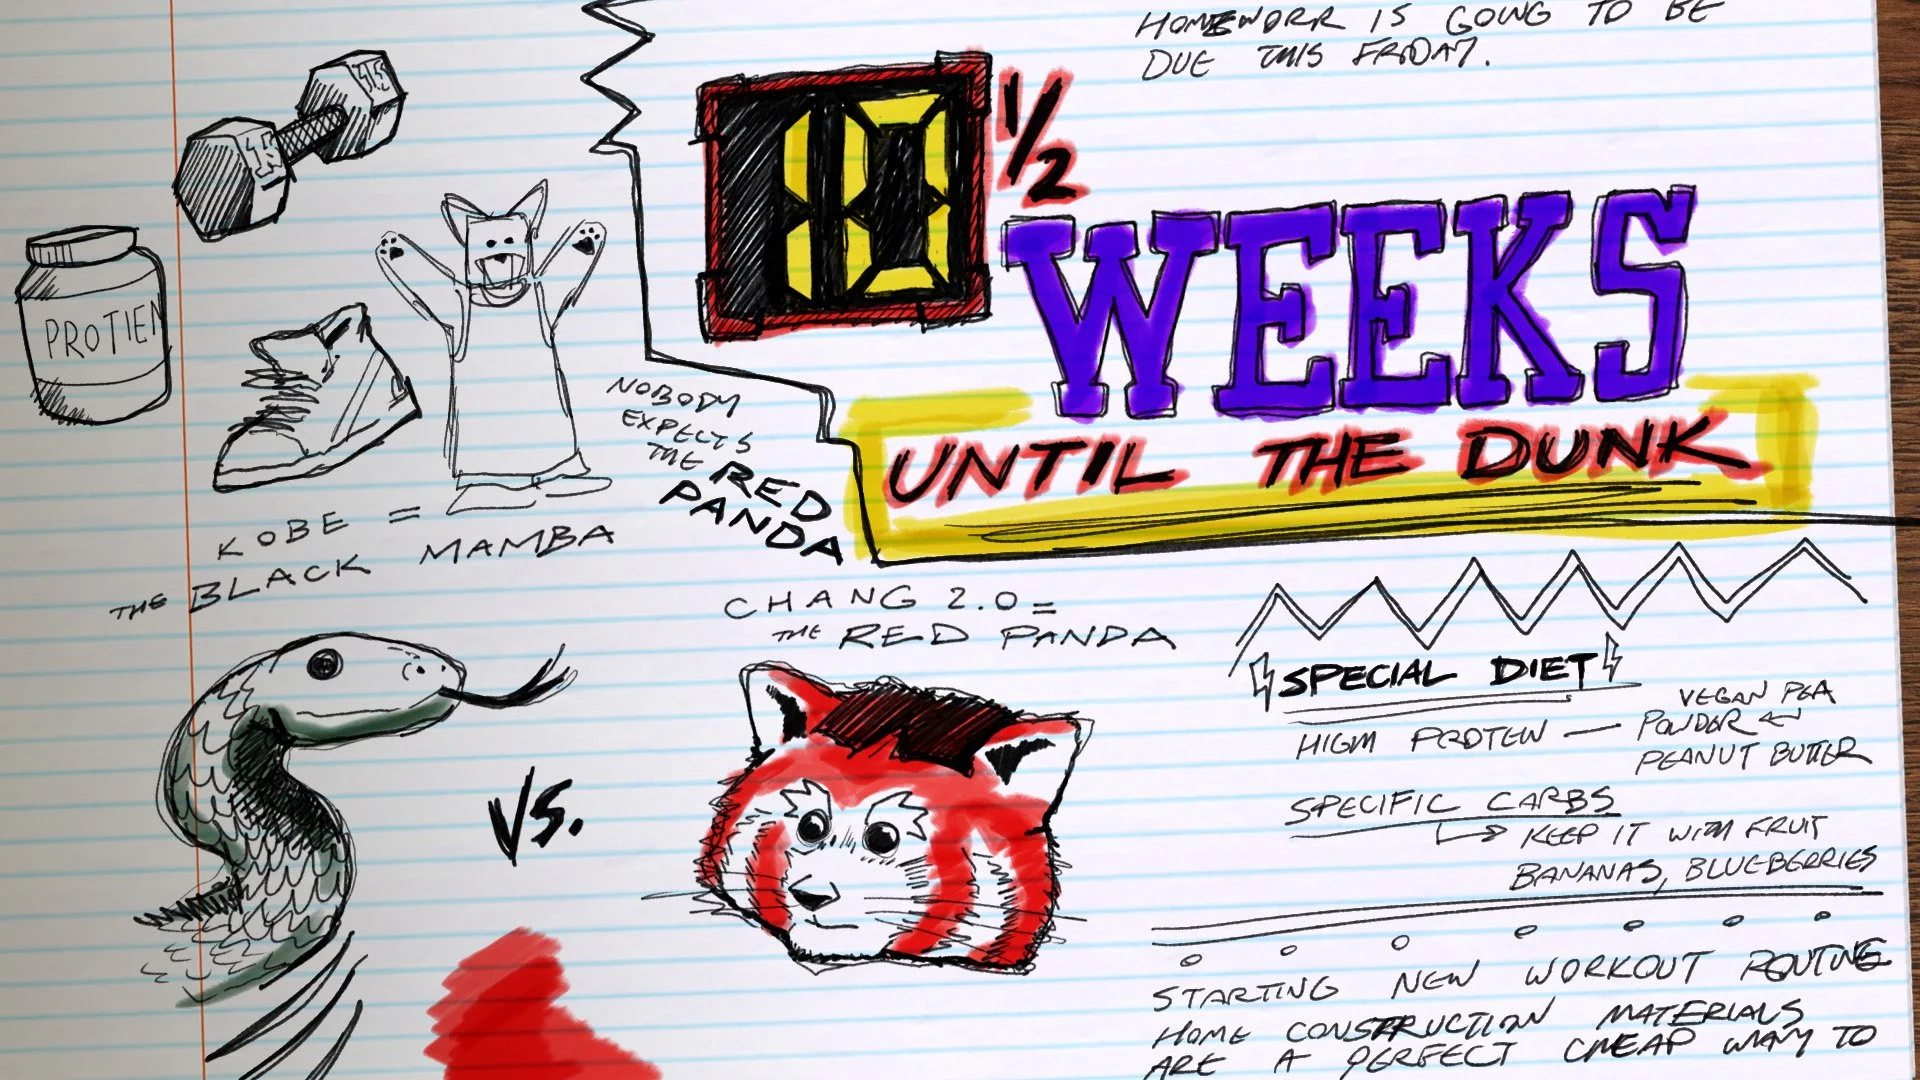 HOMEWORK IS GOING TO BE
DUE THIS FRIDAY.
15
15
PROTIEN
10 1/2
WEEKS
UNTIL THE DUNK
NOBODY
EXPECTS
THE RED
PANDA
KOBE =
THE BLACK MAMBA
CHANG 2.0 =
THE RED PANDA
VS.
SPECIAL DIET
HIGH PROTEIN — VEGAN PEA
POWDER
PEANUT BUTTER
SPECIFIC CARBS
KEEP IT WITH FRUIT
BANANAS, BLUEBERRIES
STARTING NEW WORKOUT ROUTINE
HOME CONSTRUCTION MATERIALS
ARE A PERFECT CHEAP WAY TO